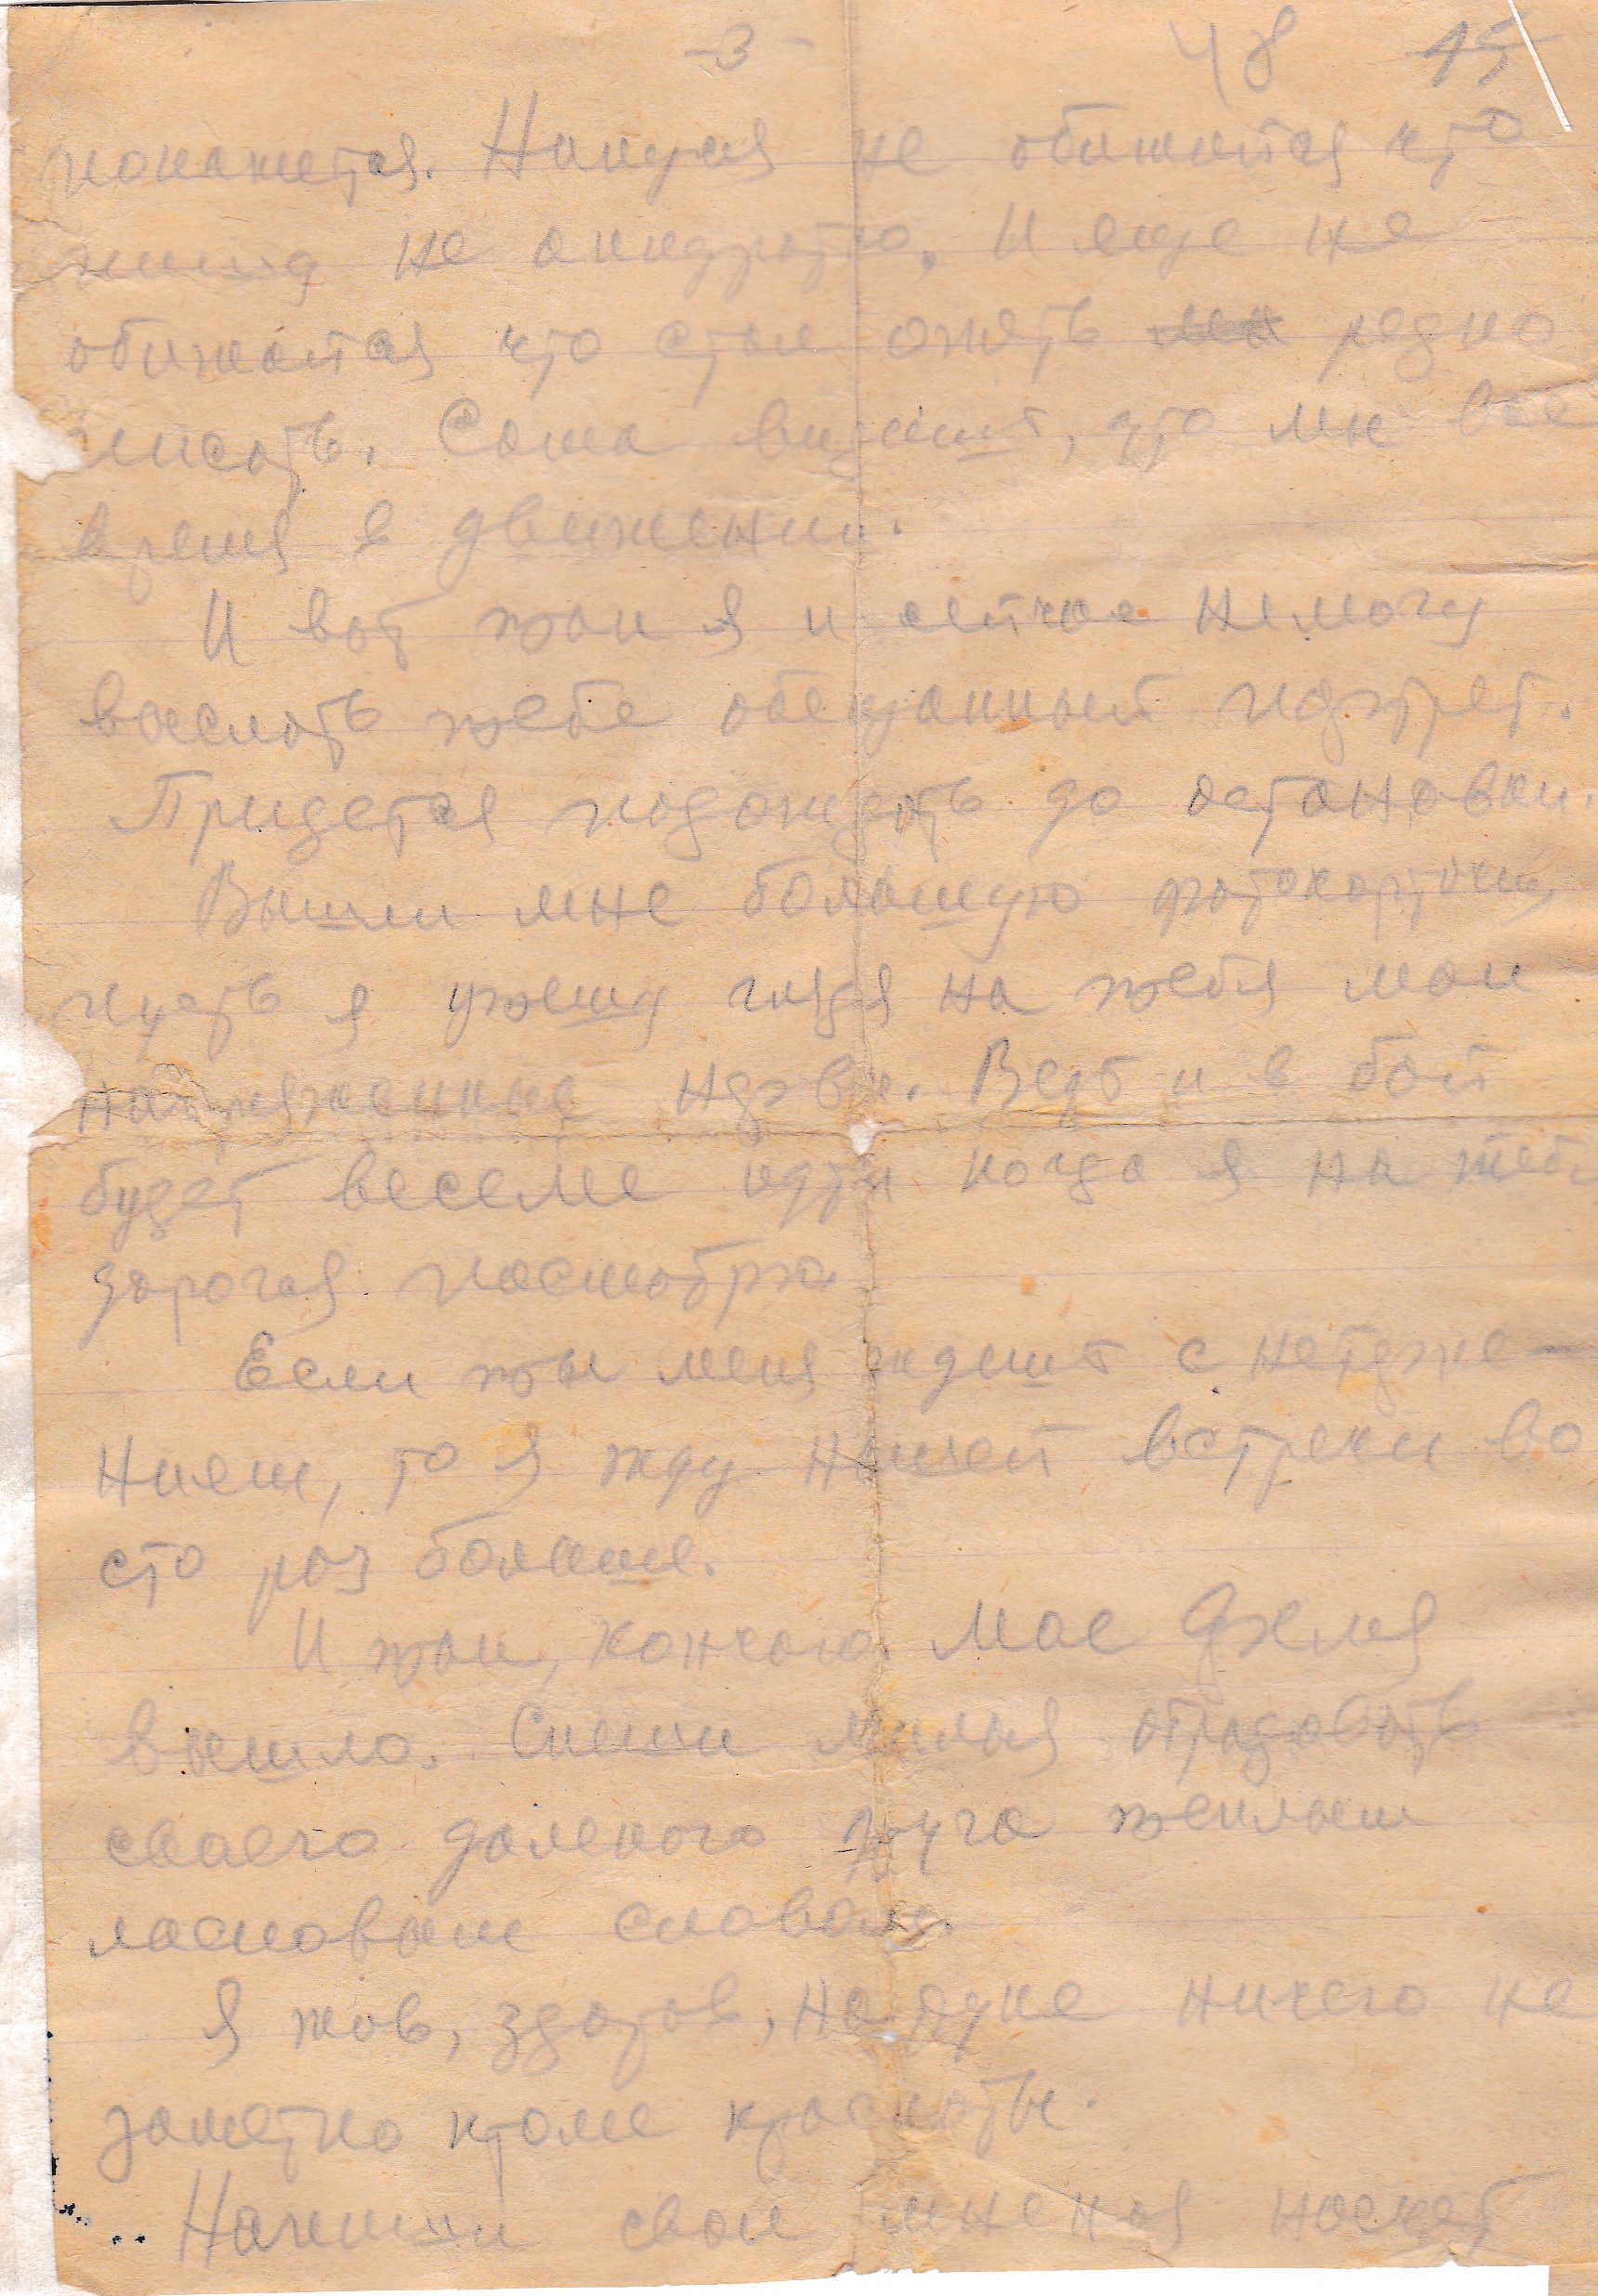 -3- 48 15
покажется. Нануся не обижайся что
пишу не аккуратно. И еще не
обижайся что стал опять редко
писать. Сама видишь, что мы все
время в движении.
И вот так я и сейчас немогу
выслать тебе обещанный портрет.
Придется подождать до остановки.
Вышли мне большую фотокарточку
пусть я утешу глядя на тебя мои
напряженные нервы. Ведь и в бой
будет веселе идти когда я на тебя
дорогая посмотрю.
Если ты меня ждешь с нетерпе-
нием, то я жду нашей встречи во
сто раз больше.
И так, кончаю. Мое время
вышло. Спеши милая обрадовать
своего далекого друга теплым
ласковым словом.
Я жив, здоров, на руке ничего не
заметно кроме красноты.
Напиши свои мнения насчет